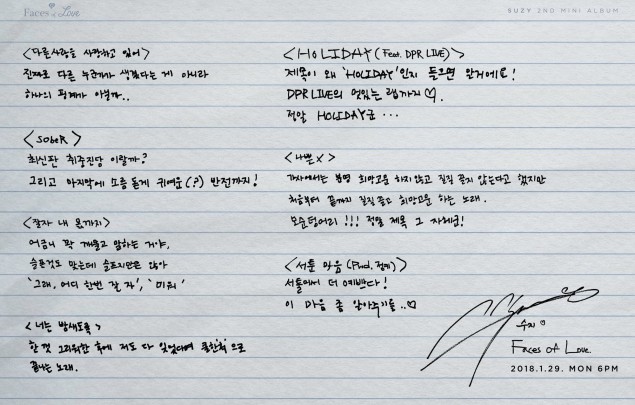 Faces of Love
SUZY 2ND MINI ALBUM
<다른사람을 사랑하고 있어>
진짜로 다른 누군가가 생겼다는 게 아니라
하나의 핑계가 아닐까..
<SObeR>
최신판 취중진담 이랄까?
그리고 마지막에 소름 돋게 귀여운(?) 반전까지!
<잘자 내 몫까지>
어금니 꽉 깨물고 말하는 거야,
슬픈것도 맞는데 슬프지만은 않아
'그래, 어디 한번 잘 자', '미워'
<너는 밤새도록>
한 껏 그리워한 후에 저도 다 잊었다며 쿨한척 으로
끝나는 노래.
<HOLIDAY (Feat. DPR LIVE)>
제목이 왜 'HOLIDAY'인지 들으면 알거에요!
DPR LIVE의 멋있는 랩까지♡.
정말 HOLIDAY군 ...
<나쁜X>
가사에서는 분명 희망고문 하지 않고 질질 끌지 않는다고 했지만
처음부터 끝까지 질질 끌고 희망고문 하는 노래.
모순덩어리 !!! 정말 제목 그 자체군!
<서툰 마음 (Prod. 점퍼)>
서툴어서 더 예쁘다!
이 마음 좀 알아주기를..♡
수지♡
Faces of Love.
2018.1.29. MON 6PM